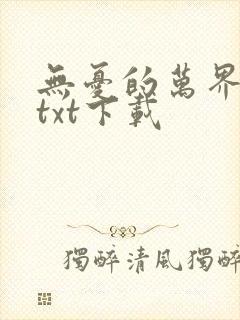 無憂的萬界
txt下載
獨醉清風獨醉